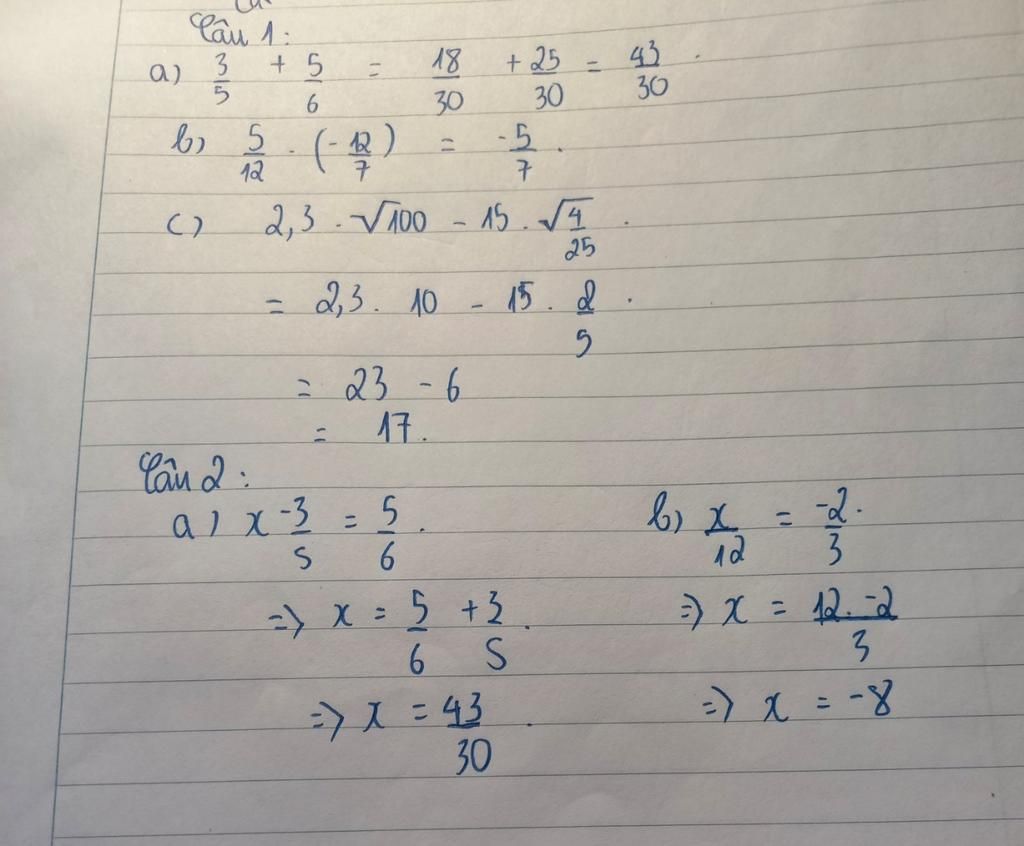 Câu 1:
a) 3/5 + 5/6 = 18/30 + 25/30 = 43/30.
b) 5/12 . (-12/7) = -5/7.
c) 2,3 . √100 - 15 . √4/25.
= 2,3 . 10 - 15 . 2/5.
= 23 - 6
= 17.
Câu 2:
a) x - 3/5 = 5/6.
=> x = 5/6 + 3/5.
=> x = 43/30.
b) x/12 = -2/3.
=> x = 12.-2/3
=> x = -8